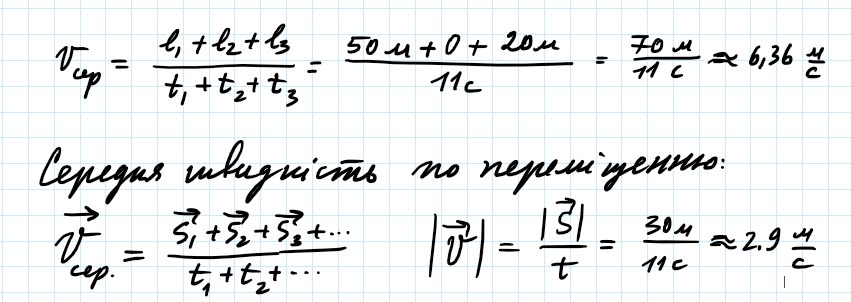 v сер = (l₁ + l₂ + l₃) / (t₁ + t₂ + t₃) = (50 м + 0 + 20 м) / 11 с = 70 м / 11 с ≈ 6,36 м/с
Середня швидкість по переміщенню:
v⃗ сер. = (s⃗₁ + s⃗₂ + s⃗₃ + ...) / (t₁ + t₂ + ...) |v⃗| = |s⃗| / t = 30 м / 11 с ≈ 2.9 м/с